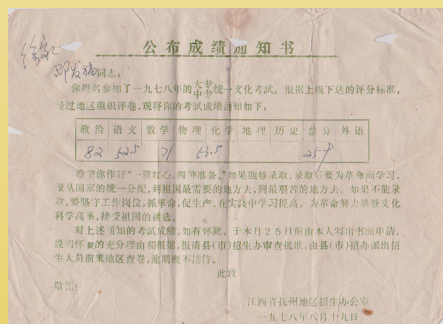 公布成绩通知书
同志:
你报名参加了一九七八年的大专中专统一文化考试。根据上级下达的评分标准,
经过地区组织评卷,现将你的考试成绩通知如下:
政治 语文 数学 物理 化学 地理 历史 总分 外语
82 52.5 71 53.5 259
给予你作好“一颗红心,两种准备。”如果能够录取,录取后要为革命而学习,
要从国家的统一分配,到祖国最需要的地方去,到最艰苦的地方去。如果不能录
取,要坚守工作岗位,抓革命,促生产,在实践中学习提高,为革命努力攀登文化
科学高峰,接受祖国的挑选。
对上述通知的考试成绩,如有怀疑,于本月25日前由本人写出书面申请,
说明怀疑的充分理由和根据,报请县(市)招生办审查批准,由县(市)招办派出招
生人员前来地区查卷,逾期概不接待。
此致
敬礼!
江西省抚州地区招生办公室
一九七八年八月十九日